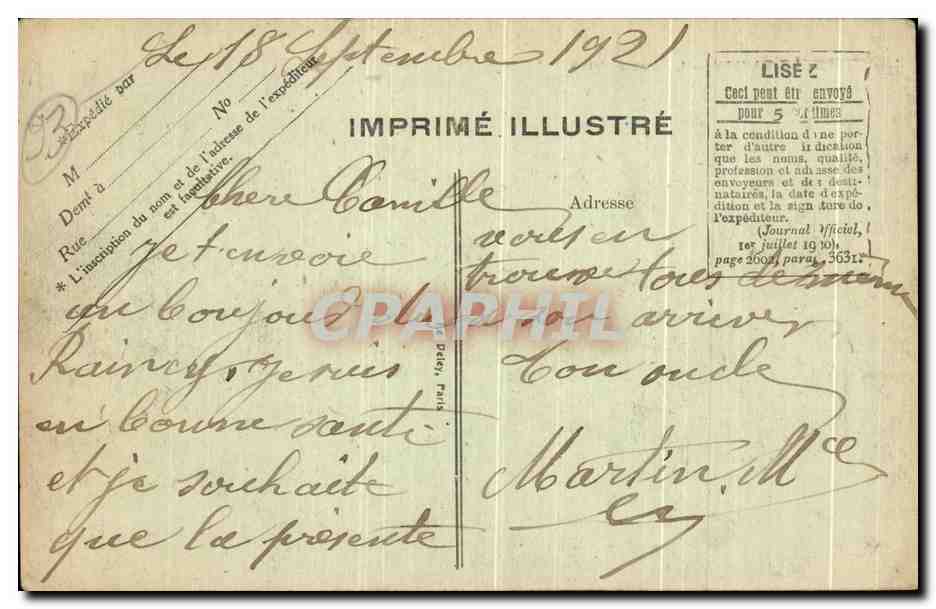 Le 18 Septembre 1921
93
Expédié par
M
Demt à
No
Rue
* L'inscription du nom et de l'adresse de l'expéditeur
est facultative.
IMPRIMÉ ILLUSTRÉ
LISEZ
Ceci peut être envoyé
pour 5 centimes
à la condition de ne por-
ter d'autre indication
que les noms, qualité,
profession et adresse des
envoyeurs et des desti-
nataires, la date d'expé-
dition et la signature de
l'expéditeur.
(Journal Officiel,
1er juillet 1920),
page 2602, parag. 3631.
Chere Camille
je t'envoie
un bonjour du
Raincy. je suis
en bonne santé
et je souhaite
que la présente
Adresse
vous en
trouve tous de même
a son arriver
Ton oncle
Martin. Mce
e Deley, Paris
CPAPHIL